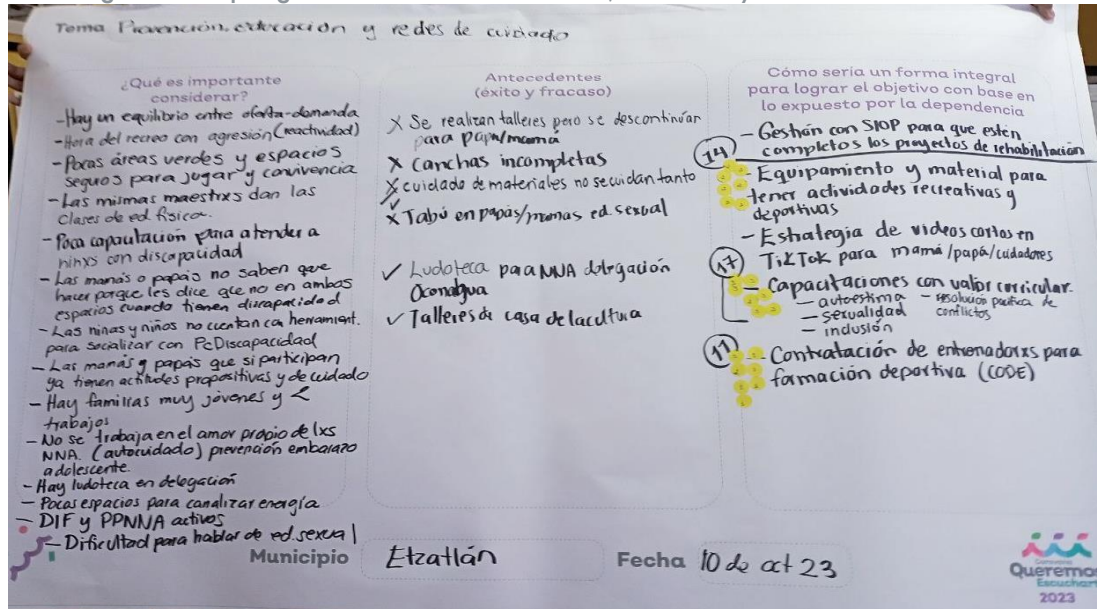 Tema Prevención, educación y redes de cuidado
¿Qué es importante
considerar?
- Hay un equilibrio entre oferta-demanda
- Hora del recreo con agresión (reactividad)
- Pocas áreas verdes y espacios
seguros para jugar y convivencia
- Las mismas maestrxs dan las
clases de ed. física.
- Poca capacitación para atender a
ninxs con discapacidad
- Las mamás o papás no saben que
hacer porque les dice que no en ambos
espacios cuando tienen discapacidad
- Las niñas y niños no cuentan con herramient.
para socializar con PcDiscapacidad
- Las mamás y papás que si participan
ya tienen actitudes propositivas y de cuidado
- Hay familias muy jóvenes y <
trabajos
- No se trabaja en el amor propio de lxs
NNA. (autocuidado) prevención embarazo
adolescente.
- Hay ludoteca en delegación
- Pocas espacios para canalizar energía
- DIF y PPNNA activos
- Dificultad para hablar de ed. sexual
Antecedentes
(éxito y fracaso)
X Se realizan talleres pero se descontinúan
para papá/mamá
X canchas incompletas
X cuidado de materiales no se cuidan tanto
✓
X Tabú en papás/mamas ed. sexual
✓ Ludoteca para NNA delegación
✓ Talleres de casa de la cultura
Cómo sería un forma integral
para lograr el objetivo con base en
lo expuesto por la dependencia
- Gestión con SIOP para que estén
completos los proyectos de rehabilitación
14 - Equipamiento y material para
tener actividades recreativas y
deportivas
- Estrategia de videos cortos en
TikTok para mamá/papá/cuidadores
17 - Capacitaciones con valor curricular.
— autoestima — resolución pacífica de
conflictos
— sexualidad
— inclusión
11 - Contratación de entrenadorxs para
formación deportiva (CODE)
Municipio Etzatlán Fecha 10 de oct 23
Queremos
Escuchar
2023